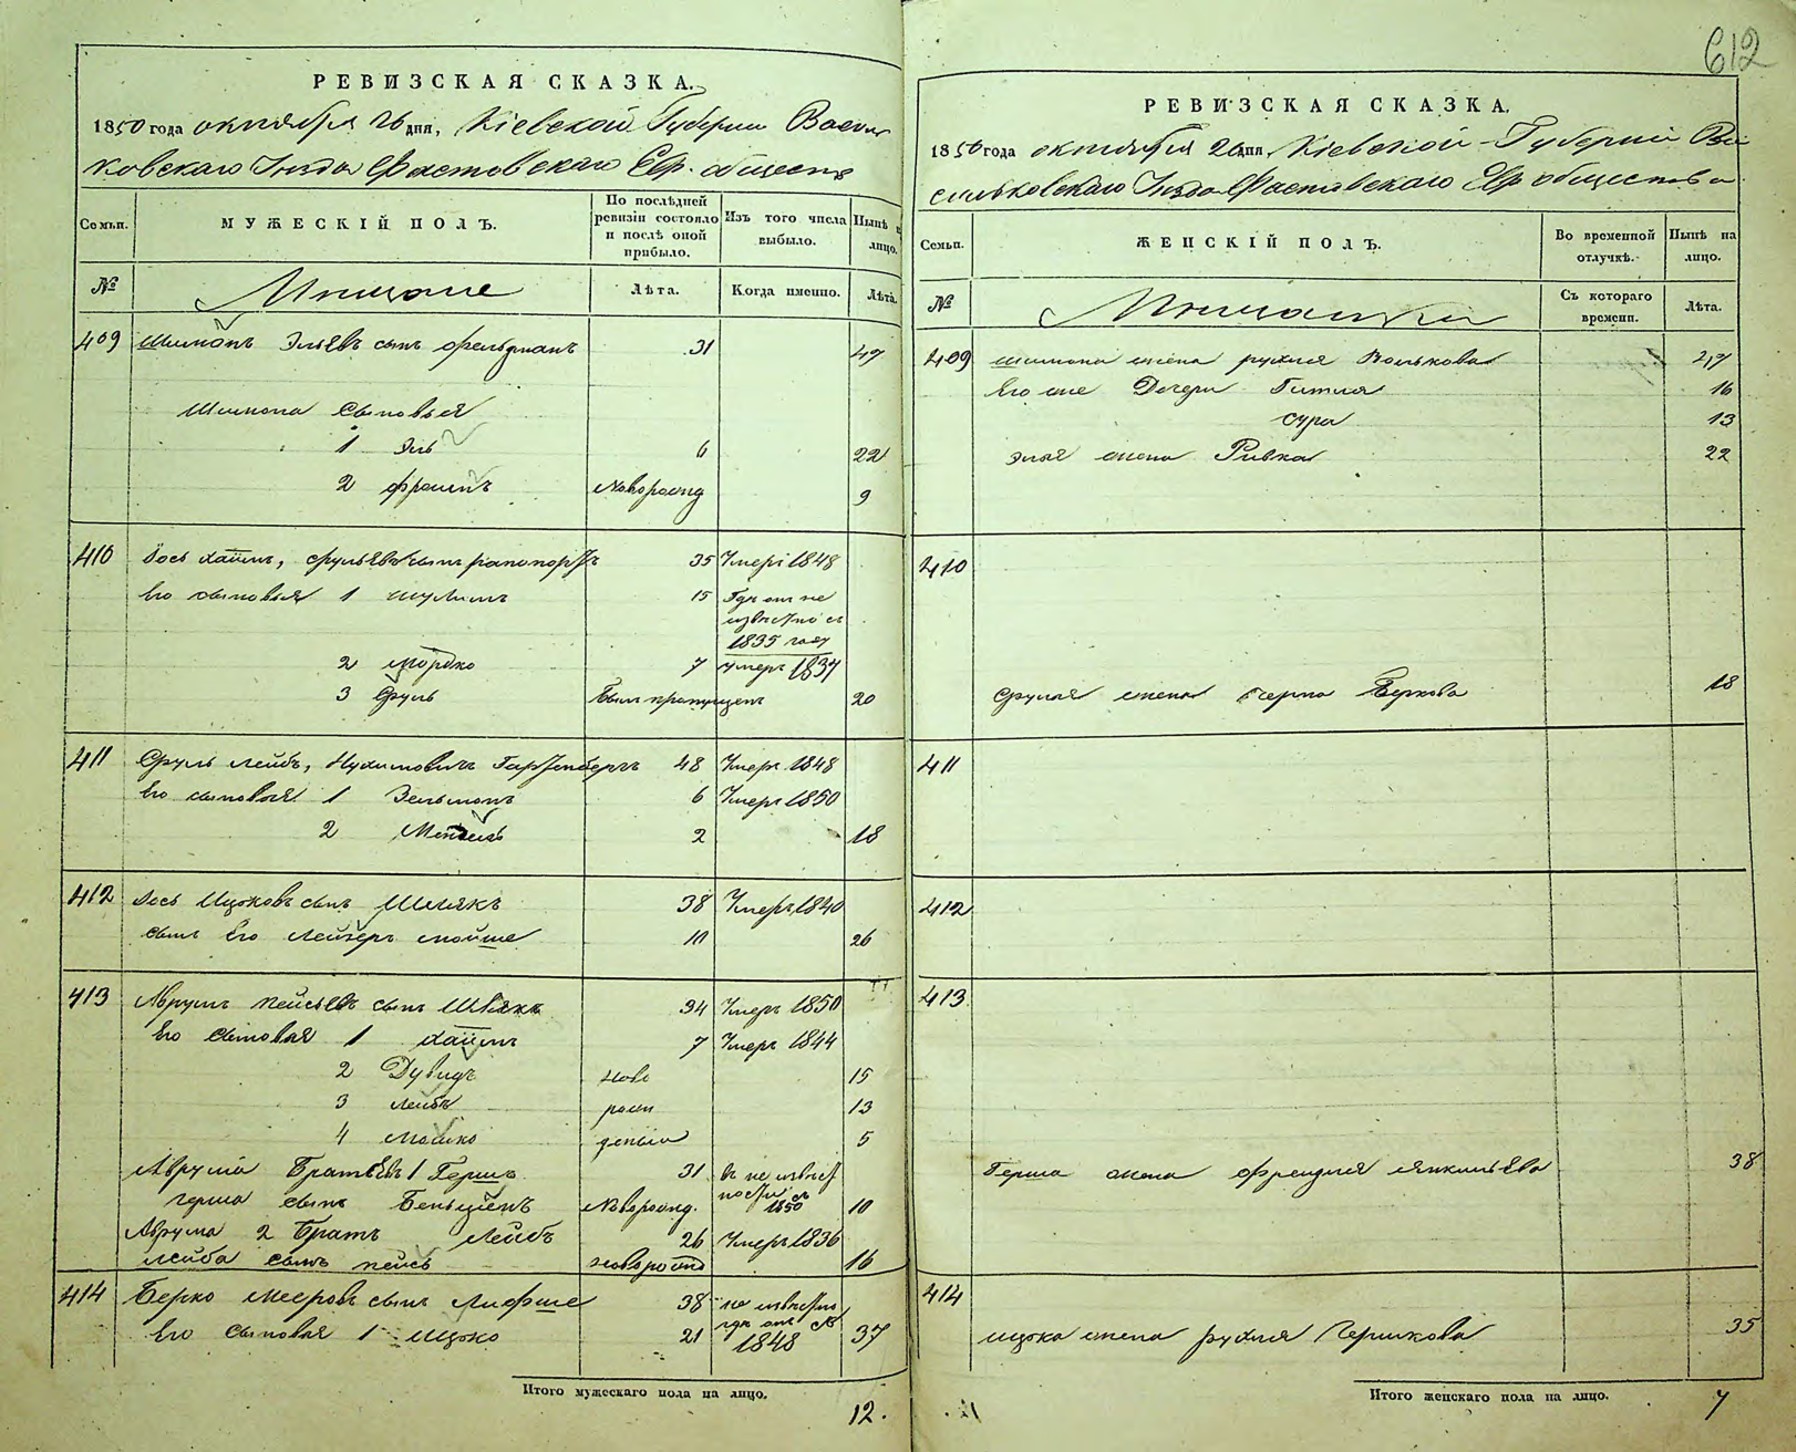 612
РЕВИЗСКАЯ СКАЗКА.
1850 года октября 26 дня, Кіевской Губерніи Василь
ковскаго Уѣзда Фастовскаго Евр. общества
Семьи.
МУЖЕСКІЙ ПОЛЪ.
По послѣдней ревизіи состояло и послѣ оной прибыло.
Изъ того числа выбыло.
Нынѣ на лицо.
№
Мѣщане
Лѣта.
Когда именно.
Лѣта.
409 Шимонъ Эльевъ сынъ Фельдманъ 31 47
Шимона сыновья
1 Эль 6 22
2 Фроимъ новорожд 9
410 Іось Хаимъ, Срульевъ сынъ рапопортъ 35 Умеръ 1848
Его сыновья 1 Шулимъ 15 Гдѣ онъ не
извѣстно съ
1835 году
2 Мордко 7 умеръ 1837
3 Сруль Былъ пропущенъ 20
411 Сруль Лейбъ, Нухимовичъ Гартенбергъ 48 Умеръ 1848
Его сыновья 1 Зельманъ 6 Умеръ 1850
2 Мендель 2 18
412 Іось Ицковъ сынъ Шмлякъ 38 Умеръ 1840
сынъ Его Лейзеръ Мойше 10 26
413 Аврумъ Пейсьевъ сынъ Швякъ 34 Умеръ 1850
Его сыновья 1 Хаимъ 7 Умеръ 1844
2 Дувидъ ново 15
3 Лейбъ рожд 13
4 Мошко деныи 5
Аврума Братьевъ 1 Гершъ 31 въ не извѣст
ности съ
1850
герша сынъ Беньціенъ новорожд. 10
Аврума 2 Братъ Лейбъ 26 Умеръ 1836
Лейба сынъ пейсъ новорожд 16
414 Берко Мееровъ сынъ Лифше 38 не извѣстно
гдѣ онъ съ
Его сыновья 1 Ицко 21 1848 37
Итого мужескаго пола на лицо.
12.
РЕВИЗСКАЯ СКАЗКА.
1850 года октября 26 дня, Кіевской Губерніи Ва
сильковскаго Уѣзда Фастовскаго Евр общества
Семьи.
ЖЕНСКІЙ ПОЛЪ.
Во временной отлучкѣ.
Нынѣ на лицо.
№
Мѣщанки
Съ котораго времени.
Лѣта.
409 Шимона жена рухля Волькова 47
Его же Дочери Гитля 16
сура 13
Эля жена Ривка 22
410
Сруля жена черна Беркова 18
411
412
413
Герша жена Фрейдля Янкильева 38
414
Ицка жена рухля Гершкова 35
Итого женскаго пола на лицо.
7